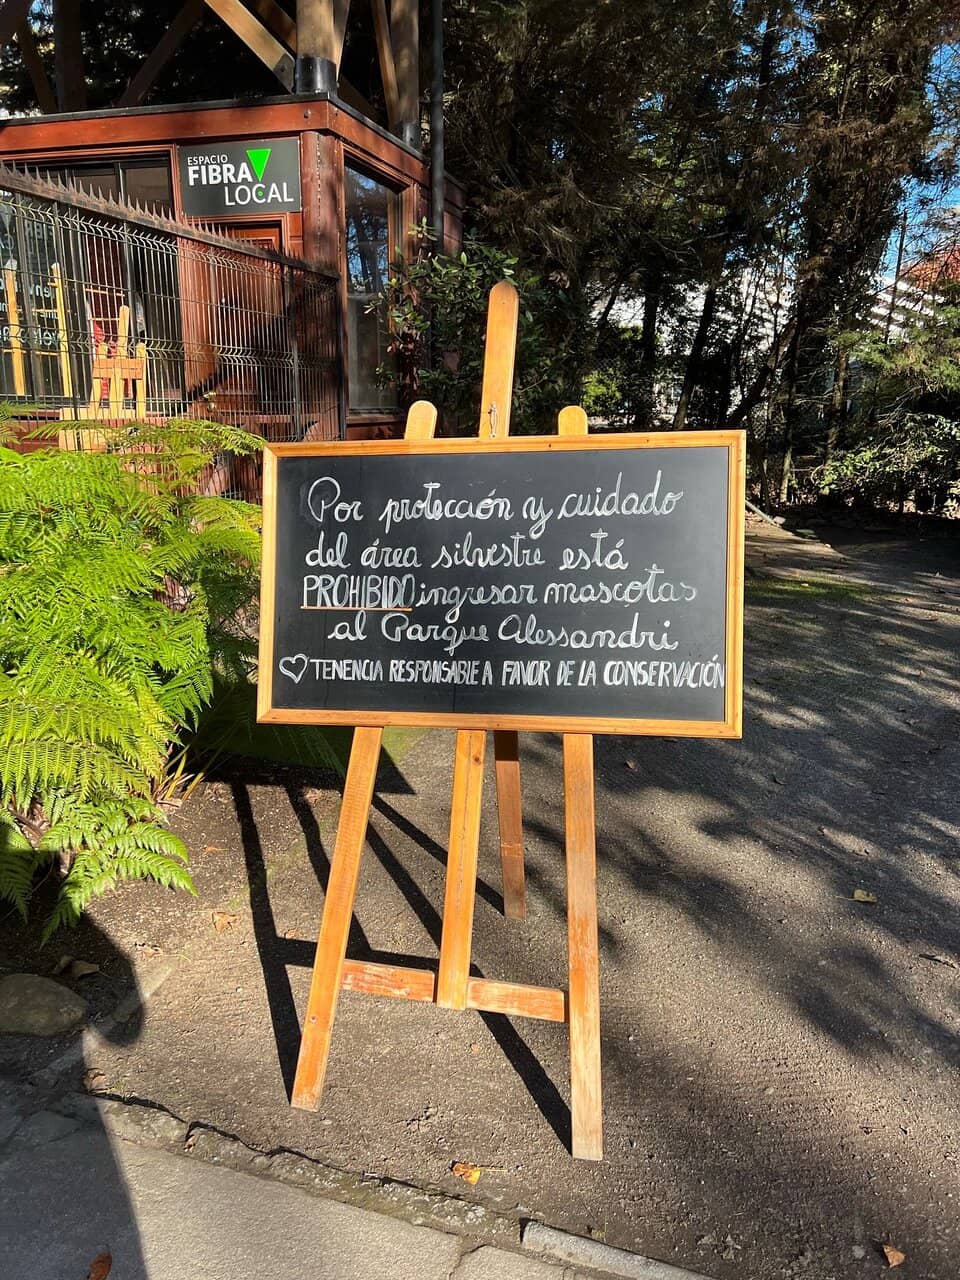 ESPACIO
FIBRA
LOCAL
Por protección y cuidado
del área silvestre está
PROHIBIDO ingresar mascotas
al Parque Alessandri
♡ TENENCIA RESPONSABLE A FAVOR DE LA CONSERVACIÓN